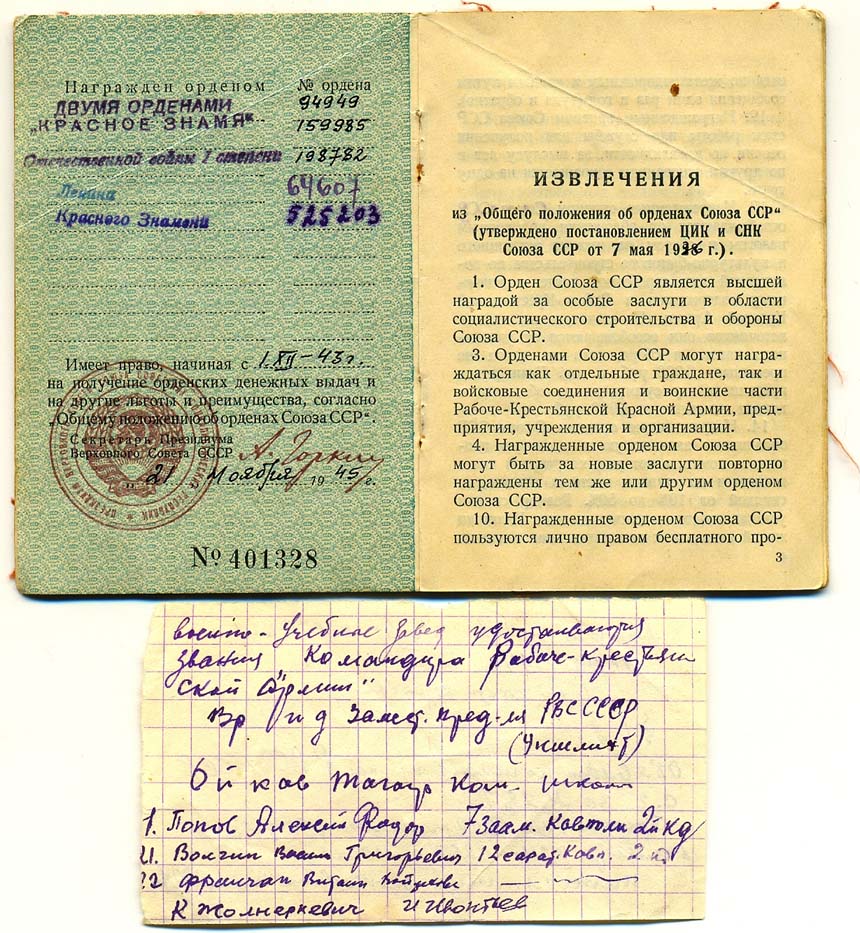 Награжден орденом № ордена
ДВУМЯ ОРДЕНАМИ 94949
„КРАСНОЕ ЗНАМЯ“ 159985
Отечественной войны I степени 198782
Ленина 64607
Красного Знамени 525203
Имеет право, начиная с 1.XII-43г.
на получение орденских денежных выдач и
на другие льготы и преимущества, согласно
„Общему положению об орденах Союза ССР“.
Секретарь Президиума
Верховного Совета СССР А. Горкин
„21 Ноября 1945г.
№ 401328
ИЗВЛЕЧЕНИЯ
из „Общего положения об орденах Союза ССР“
(утверждено постановлением ЦИК и СНК
Союза ССР от 7 мая 1936 г.).
1. Орден Союза ССР является высшей
наградой за особые заслуги в области
социалистического строительства и обороны
Союза ССР.
3. Орденами Союза ССР могут награ-
ждаться как отдельные граждане, так и
войсковые соединения и воинские части
Рабоче-Крестьянской Красной Армии, пред-
приятия, учреждения и организации.
4. Награжденные орденом Союза ССР
могут быть за новые заслуги повторно
награждены тем же или другим орденом
Союза ССР.
10. Награжденные орденом Союза ССР
пользуются лично правом бесплатного про-
3
военно-учебное завед удостаиваются
звания Командира Рабоче-Крестьян
ской Армии"
Вр и д Замст. Пред-ля РВСССССР
(Уншлихт)
6й кав Ком. школа
1. Попов Алексей Федор 7 заам. Кавполк 2й Кд
21. Волгин Васил Григорьевич 12 сарат. Кавп. 2 кд
22
К Жолнеркевич